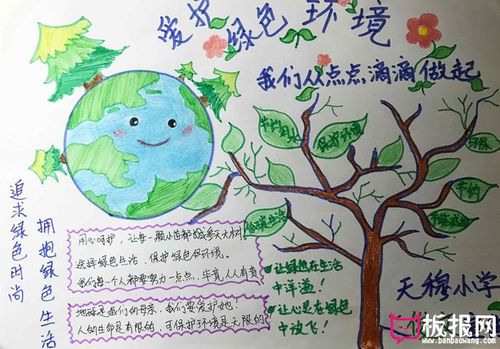 爱护绿色环境
我们从点点滴滴做起
节约用水
保护环境
环保
节约
绿色生活
追求绿色时尚
拥抱绿色生活
用心呵护，让每一颗小苗都长成参天大树
选择绿色生活，保护绿色的环境。
我们每一个人都要努力一点点，毕竟人人有责
地球是我们的母亲，我们要爱护她！
人的生命是有限的，可保护环境是无限的
让绿色在生活
中洋溢！
让心灵在绿色
中放飞！
天穆小学
板报网
www.banbaowang.com